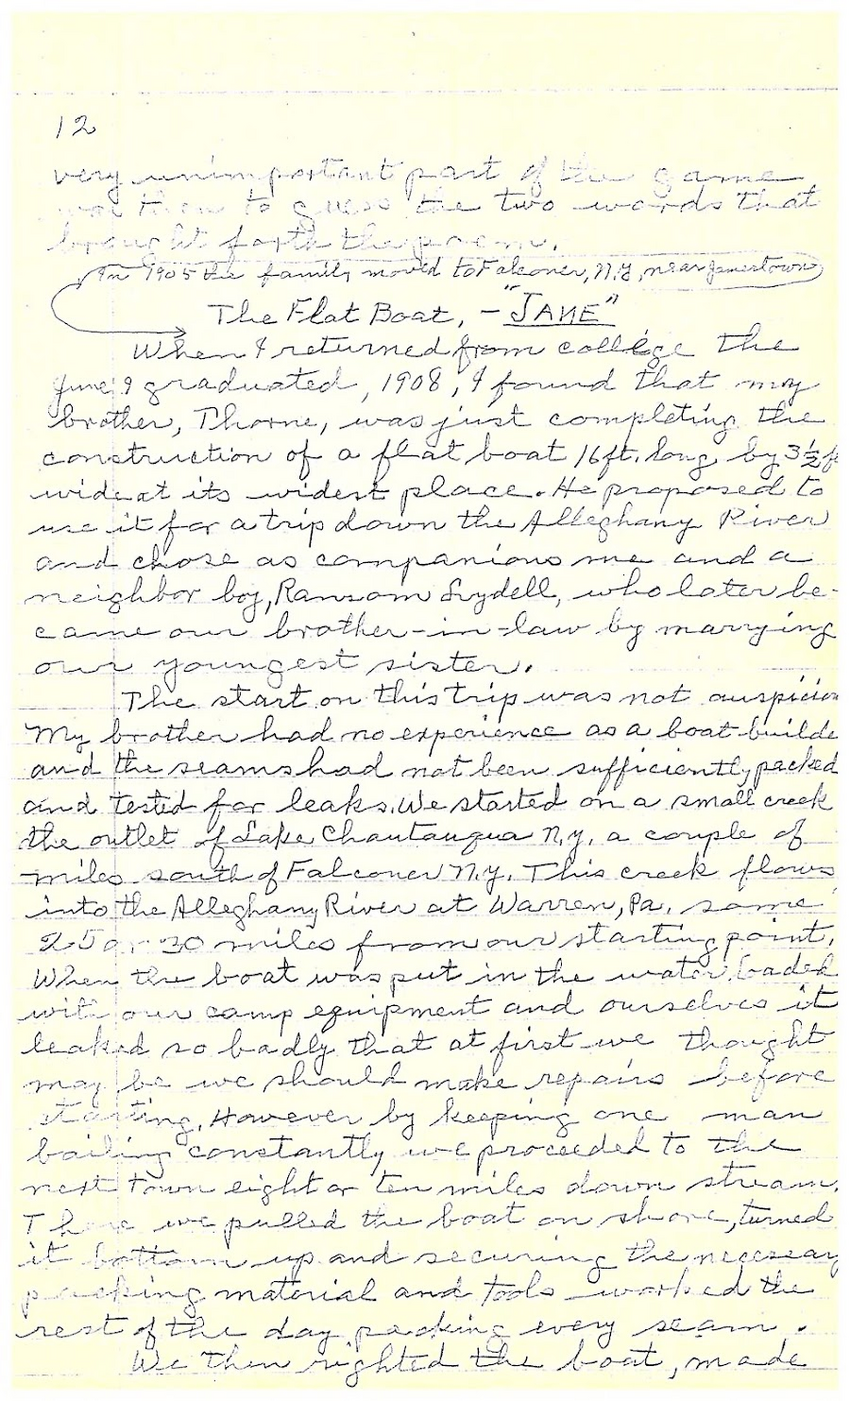 12
very unimportant part of the game
was then to guess the two words that
brought forth the poem.
In 1905 the family moved to Falconer, N.Y., near Jamestown
The Flat Boat, - "JANE"
When I returned from college the
June I graduated, 1908, I found that my
brother, Thorne, was just completing the
construction of a flat boat 16 ft. long by 3½ f
wide at its widest place. He proposed to
use it for a trip down the Alleghany River
and chose as companions me and a
neighbor boy, Ransom Lydell, who later be-
came our brother-in-law by marrying
our youngest sister.
The start on this trip was not auspiciou
My brother had no experience as a boat builde
and the seams had not been sufficiently packed
and tested for leaks. We started on a small creek
the outlet of Lake Chautauqua N.Y. a couple of
miles south of Falconer N.Y. This creek flows
into the Alleghany River at Warren, Pa. some
25 or 30 miles from our starting point.
When the boat was put in the water loaded
with our camp equipment and ourselves it
leaked so badly that at first we thought
may be we should make repairs before
starting. However by keeping one man
bailing constantly we proceeded to the
next town eight or ten miles down stream.
There we pulled the boat on shore, turned
it bottom up and securing the necessary
packing material and tools worked the
rest of the day packing every seam.
We then righted the boat, made